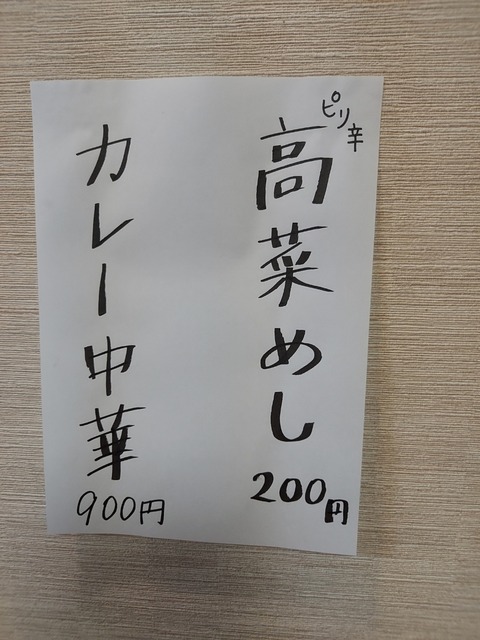 ピリ辛
高菜めし
200円
カレー中華
900円